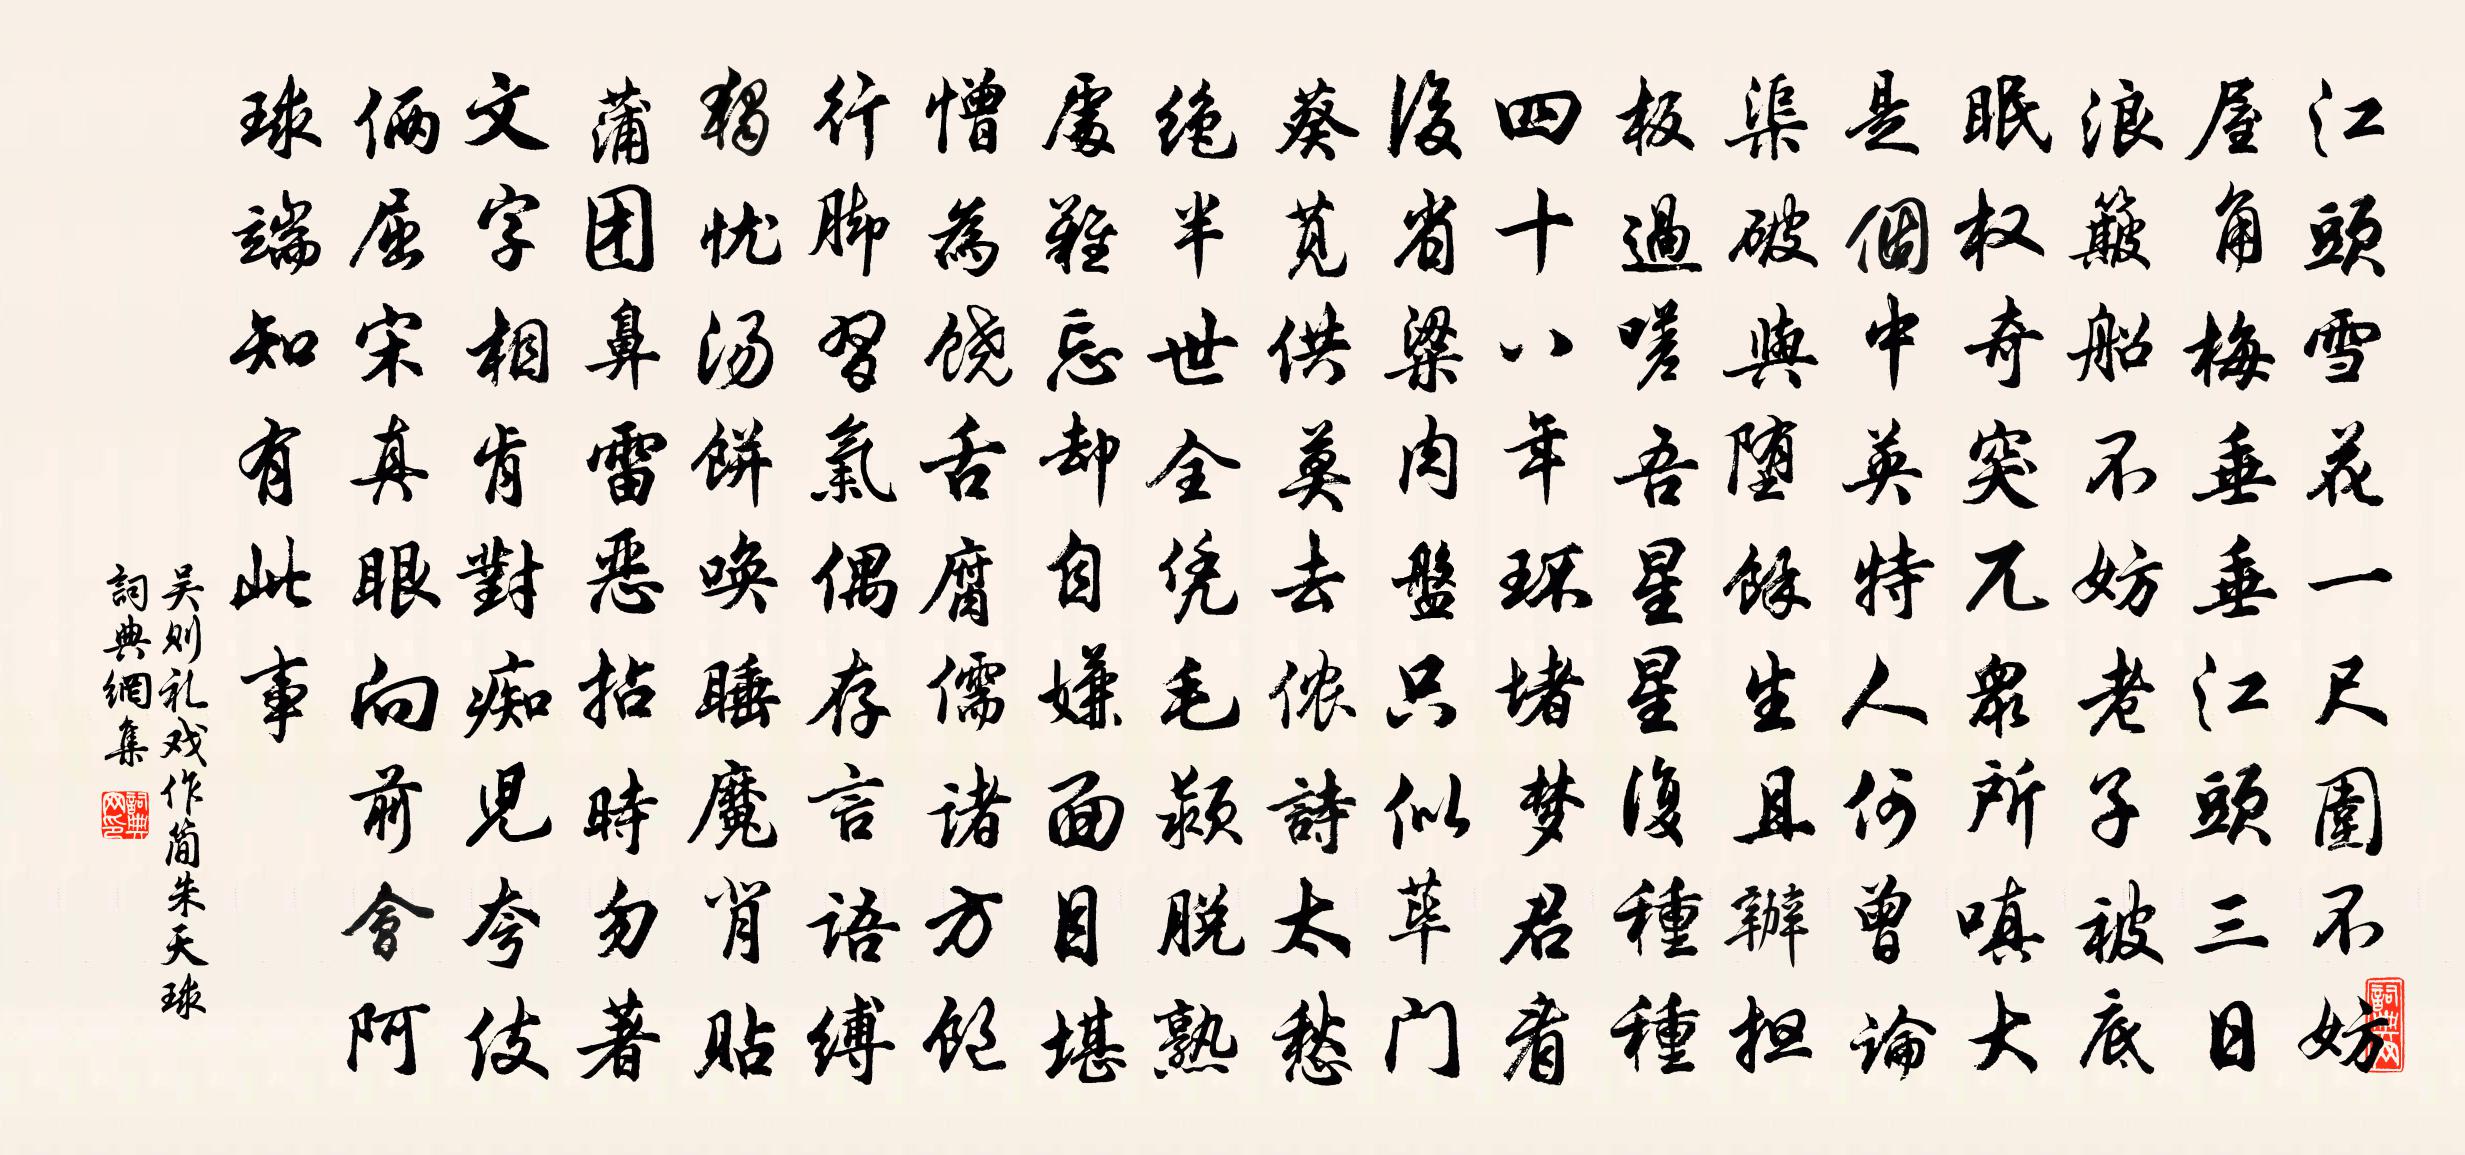 江頭雪花一尺圍不妨
屋角梅垂垂江頭三日
浪簸船不妨老子被底
眠权奇突兀眾所嗔大
是個中英特人何曾論
渠破與堕餘生且辦担
板過嗟吾星星復種種
四十八年环堵梦君看
後省粱肉盤只似荜门
葵苋供莫去侬詩太愁
绝半世全凭毛颖脱熟
處難忘却自嫌面目堪
憎為饶舌腐儒诸方饱
行脚習氣偶存言語缚
猲忧汤餅唤睡魔肖貼
蒲团鼻雷恶拈時勿著
文字相肯對痴児夸伎
俩屈宋真眼向前會阿
球端知有此事
吴则礼戏作简朱天球
詞典網集
詞典网印
詞典网